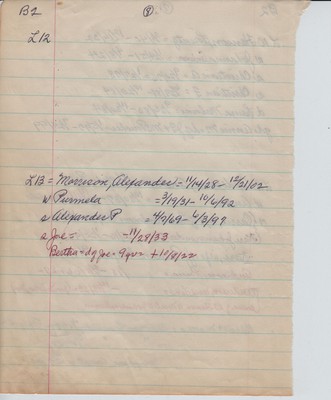 B2 (8).
L12
L13 = Morrison, Alexander = 11/14/28 - 12/21/02
w Purmela = 3/19/31 - 10/6/92
s Alexander P = 4/9/69 - 6/3/97
s Joe = = 11/28/33
Bertha = d of Joe = 9 yrs + 10/8/22